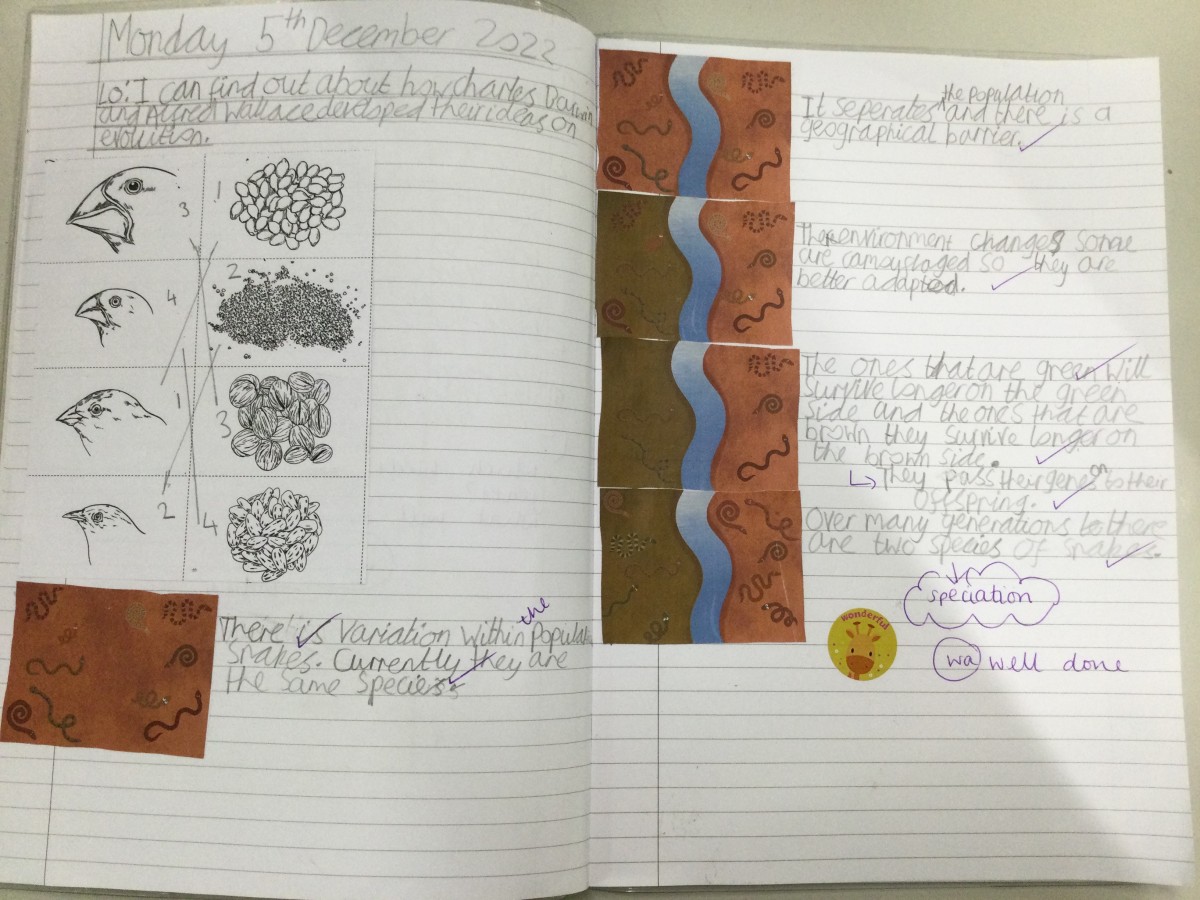 Monday 5th December 2022
LO: I can find out about how Charles Darwin
and Alfred Wallace developed their ideas on
evolution.
3
1
4
2
1
3
2
4
There is variation within the populat
snakes. Currently they are
the same species.
It seperates the population and there is a
geographical barrier.
The environment changes some
are camouflaged so they are
better adapted.
The ones that are green will
survive longer on the green
side and the ones that are
brown they survive longer on
the brown side.
↳ They pass their genes on to their
offspring.
Over many generations there
are two species of snakes.
speciation
wonderful
wa well done